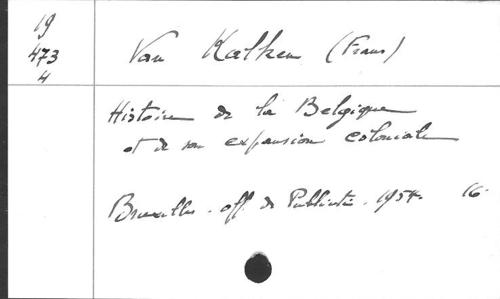 19
473
4
Van Kalken (Frans)
Histoire de la Belgique
et de son expansion coloniale
Bruxelles. off. de Publicité. 1954. 16